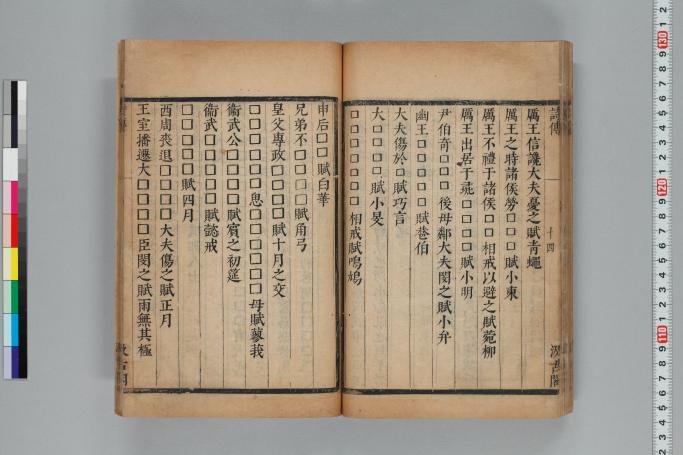 詩傳
十四
汲古閣
厲王信讒大夫憂之賦青蠅
厲王之時諸侯勞□□□賦小東
厲王不禮于諸侯□□相戒以避之賦菀柳
厲王出居于彘□□□□賦小明
尹伯奇□□□後母鄰大夫閔之賦小弁
幽王□□□□□□賦巷伯
大夫傷於□賦巧言
大□□□□賦小旻
□□□□□□□相戒賦鳴鳩
申后□□賦白華
兄弟不□□□□賦角弓
皇父專政□□□□賦十月之交
□□□□□□息□□□□□□母賦蓼莪
衞武公□□□□賦賓之初筵
衞武□□□□□賦懿戒
□□□□□賦四月
西周喪退□□□□大夫傷之賦正月
王室播遷大□□□□臣閔之賦雨無其極